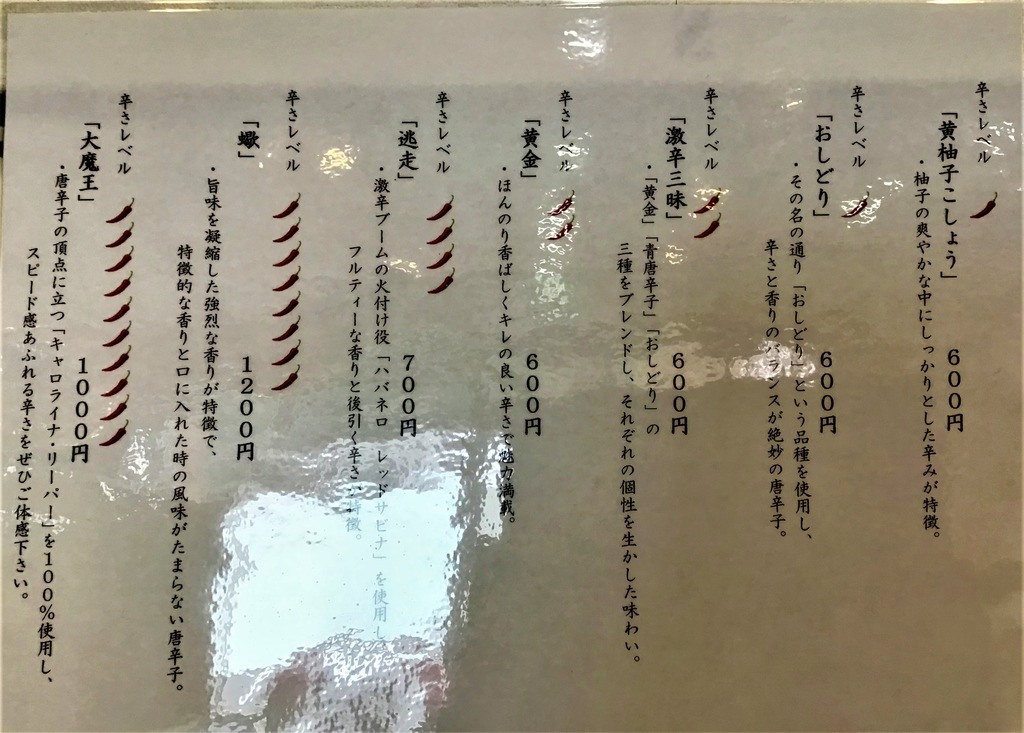 辛さレベル
「黄柚子こしょう」 600円
・柚子の爽やかな中にしっかりとした辛みが特徴。
辛さレベル
「おしどり」 600円
・その名の通り「おしどり」という品種を使用し、
辛さと香りのバランスが絶妙の唐辛子。
辛さレベル
「激辛三昧」 600円
・「黄金」「青唐辛子」「おしどり」の
三種をブレンドし、それぞれの個性を生かした味わい。
辛さレベル
「黄金」 600円
・ほんのり香ばしくキレの良い辛さで魅力満載。
辛さレベル
「逃走」 700円
・激辛ブームの火付け役「ハバネロ レッドサビナ」を使用し、
フルティーな香りと後引く辛さが特徴。
辛さレベル
「蠍」 1200円
・旨味を凝縮した強烈な香りが特徴で、
特徴的な香りと口に入れた時の風味がたまらない唐辛子。
辛さレベル
「大魔王」 1000円
・唐辛子の頂点に立つ「キャロライナ・リーパー」を100%使用し、
スピード感あふれる辛さをぜひご体感下さい。